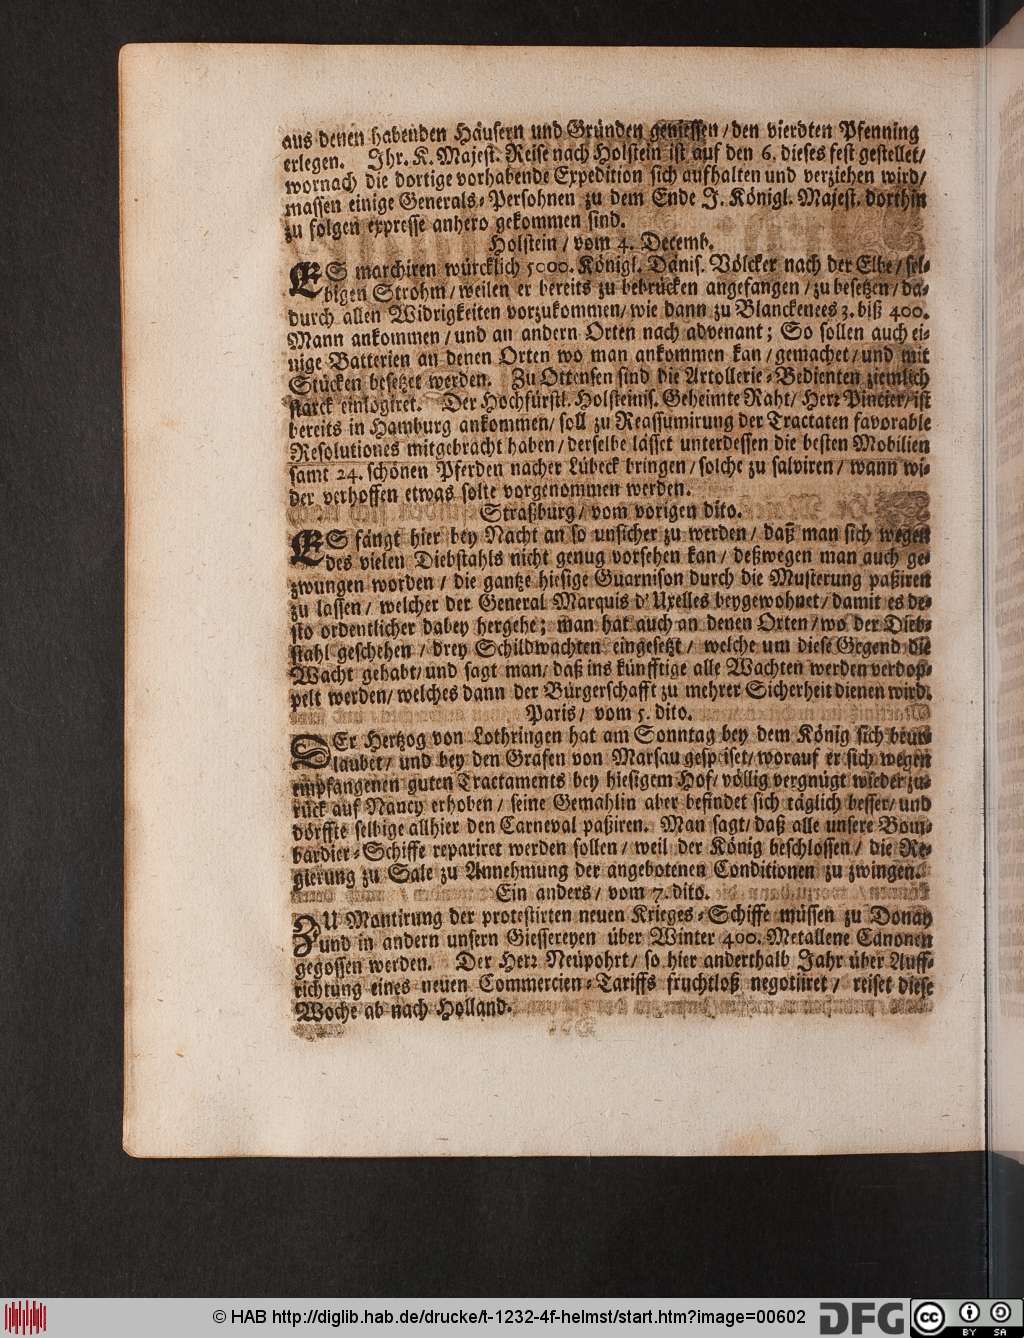 aus denen habenden Häusern und Gründen geniessen / den vierdten Pfenning
erlegen. Ihr. K. Majest. Reise nach Holstein ist auf den 6. dieses fest gestellet /
wornach die dortige vorhabende Expedition sich aufhalten und verziehen wird /
massen einige Generals-Persohnen zu dem Ende J. Königl. Majest. dorthin
zu folgen expresse anhero gekommen sind.
Holstein / vom 4. Decemb.
ES marchiren würcklich 5000. Königl. Dänis. Völcker nach der Elbe / sel-
bigen Strohm / weilen er bereits zu bebrücken angefangen / zu besetzen / da-
durch allen Widrigkeiten vorzukommen / wie dann zu Blanckenees 3. biß 400.
Mann ankommen / und an andern Orten nach advenant; So sollen auch ei-
nige Batterien an denen Orten wo man ankommen kan / gemachet / und mit
Stücken besetzet werden. Zu Ottensen sind die Artollerie-Bedienten ziemlich
starck einlogiret. Der Hochfürstl. Holsteinis. Geheimte Raht / Herr Pincier / ist
bereits in Hamburg ankommen / soll zu Reassumirung der Tractaten favorable
Resolutiones mitgebracht haben / derselbe lässet unterdessen die besten Mobilien
samt 24. schönen Pferden nacher Lübeck bringen / solche zu salviren / wann wi-
der verhoffen etwas solte vorgenommen werden.
Straßburg / vom vorigen dito.
ES fängt hier bey Nacht an so unsicher zu werden / daß man sich wegen
des vielen Diebstahls nicht genug vorsehen kan / deßwegen man auch ge-
zwungen worden / die gantze hiesige Guarnison durch die Musterung paßiren
zu lassen / welcher der General Marquis d'Uxelles beygewohnet / damit es de-
sto ordentlicher dabey hergehe; man hat auch an denen Orten / wo der Dieb-
stahl geschehen / drey Schildwachten eingesetzt / welche um diese Gegend die
Wacht gehabt / und sagt man / daß ins künfftige alle Wachten werden verdop-
pelt werden / welches dann der Bürgerschafft zu mehrer Sicherheit dienen wird.
Paris / vom 5. dito.
DEr Hertzog von Lothringen hat am Sonntag bey dem König sich beur-
laubet / und bey den Grafen von Marsau gespeiset / worauf er sich wegen
empfangenen guten Tractaments bey hiesigem Hof / völlig vergnügt wieder zu-
rück auf Nancy erhoben / seine Gemahlin aber befindet sich täglich besser / und
dörffte selbige allhier den Carneval paßiren. Man sagt / daß alle unsere Bom-
bardier-Schiffe repariret werden sollen / weil der König beschlossen / die Re-
gierung zu Sale zu Annehmung der angebotenen Conditionen zu zwingen.
Ein anders / vom 7. dito.
ZU Montirung der protestirten neuen Krieges-Schiffe müssen zu Donay
und in andern unsern Giessereyen über Winter 400. Metallene Canonen
gegossen werden. Der Herr Neüpohrt / so hier anderthalb Jahr über Auff-
richtung eines neuen Commercien-Tariffs fruchtloß negotiiret / reiset diese
Woche ab nach Holland.
© HAB http://diglib.hab.de/drucke/t-1232-4f-helmst/start.htm?image=00602
DFG
cc BY SA